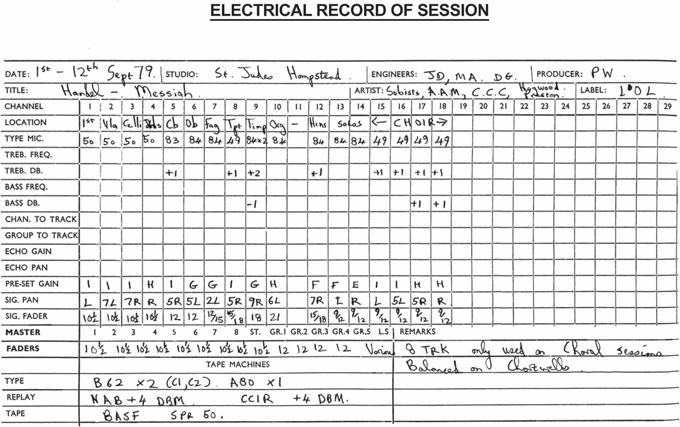 ELECTRICAL RECORD OF SESSION
DATE: 1st - 12th Sept 79. STUDIO: St. Judes Hampstead. ENGINEERS: JD, MA, DG. PRODUCER: PW.
TITLE: Handel - Messiah. ARTIST: Soloists, A.A.M, C.C.C, Hogwood Preston LABEL: L'OL
CHANNEL 1 2 3 4 5 6 7 8 9 10 11 12 13 14 15 16 17 18 19 20 21 22 23 24 25 26 27 28 29
LOCATION 1st Vla Celli 2nds Cb Ob Fag Tpt Timp Org - Hcns solos ← CHOIR →
TYPE MIC. 50 50 50 50 83 84 84 49 84x2 84 84 84 84 49 49 49 49
TREB. FREQ.
TREB. DB. +1 +1 +2 +1 +1 +1 +1 +1
BASS FREQ.
BASS DB. -1 +1 +1
CHAN. TO TRACK
GROUP TO TRACK
ECHO GAIN
ECHO PAN
PRE-SET GAIN I I I H I G G I G H F F E I I H H
SIG. PAN L 7L 7R R 5R 5L 2L 5R 9R 6L 7R L R L 5L 5R R
SIG. FADER 10½ 10½ 10½ 10½ 12 12 12/15 15/18 18 21 15/18 9/12 9/12 9/12 9/12 9/12 9/12
MASTER 1 2 3 4 5 6 7 8 ST. GR.1 GR.2 GR.3 GR.4 GR.5 L.S REMARKS
FADERS 10½ 10½ 10½ 10½ 10½ 10½ 10½ 10½ 10½ 12 12 12 12 Various 8 TRK only used on Choral sessions
TAPE MACHINES Balanced on Chartwells.
TYPE B62 x2 (C1, C2). A80 x1
REPLAY NAB +4 DBM. CCIR +4 DBM.
TAPE BASF SPR 50.